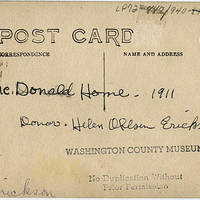 LP72-
POST CARD
CORRESPONDENCE NAME AND ADDRESS
Mc. Donald Home - 1911
Donor - Helen Olson Ericks
WASHINGTON COUNTY MUSEU
No Duplication Without
Prior Permission
rickson